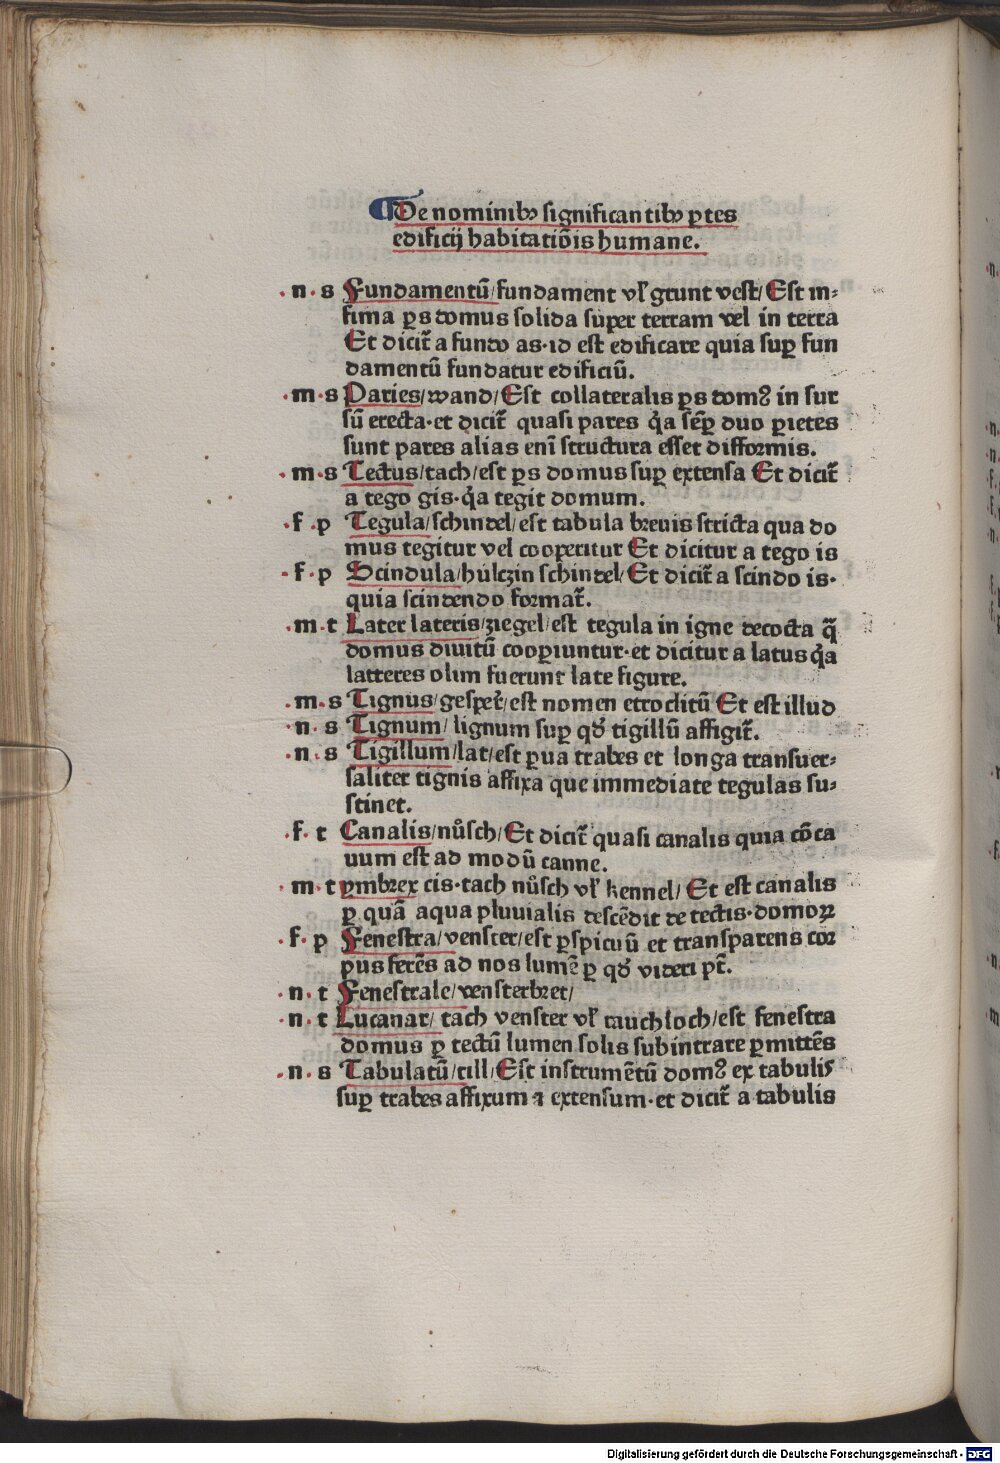 ¶De nominibꝰ significantibꝰ ꝑtes
edificij habitatiōis humane.
·n·s Fundamentū/fundament vl̛ gtunt vest/Est in⸗
fima ꝑs domus solida super terram vel in terra
Et dicit̃ a fundo as·id est edificare quia suꝑ fun
damentū fundatur edificiū.
·m·s Paries/wand/Est collateralis ꝑs domꝰ in sur
sū erecta·et dicit̃ quasi pares q̇a sēꝑ duo ꝑietes
sunt pares alias eni structura esset difformis.
·m·s Tectus/tach/est ꝑs domus suꝑ extensa Et dicit̃
a tego gis·q̇a tegit domum.
·f·p Tegula/schindel/est tabula breuis stricta qua do
mus tegitur vel cooperitur Et dicitur a tego is
·f·p Scindula/húlczin schindel/Et dicit̃ a scindo is·
quia scindendo format̃.
·m·t Later lateris/ziegel/est tegula in igne decocta q̃
domus diuitū cooꝑiuntur·et dicitur a latus q̇a
latteres olim fuerunt late figure.
·m·s Tignus/gesper̃/est nomen etroclitū Et est illud
·n·s Tignum/lignum suꝑ qd̛ tigillū affigit̃.
·n·s Tigillum/lat/est ꝑua trabes et longa transuer⸗
saliter tignis affixa que immediate tegulas su⸗
stinet.
·f·t Canalis/nůsch/Et dicit̃ quasi canalis quia cōca
uum est ad modū canne.
·m·t ymbrex cis·tach nůsch vl̛ kennel/Et est canalis
ꝑ quā aqua pluuialis descēdit de tectis·domoꝝ
·f·p Fenestra/venster/est ꝑspicuū et transparens cor
pus ferēs ad nos lumē ꝑ qd̛ videri pt̃.
·n·t Fenestrale/vensterbret/
·n·t Lucanar/tach venster vl̛ rauchloch/est fenestra
domus ꝑ tectū lumen solis subintrare ꝑmittēs
·n·s Tabulatū/till/Est instrumētū domꝰ ex tabulis
suꝑ trabes affixum ⁊ extensum·et dicit̃ a tabulis
Digitalisierung gefördert durch die Deutsche Forschungsgemeinschaft - DFG